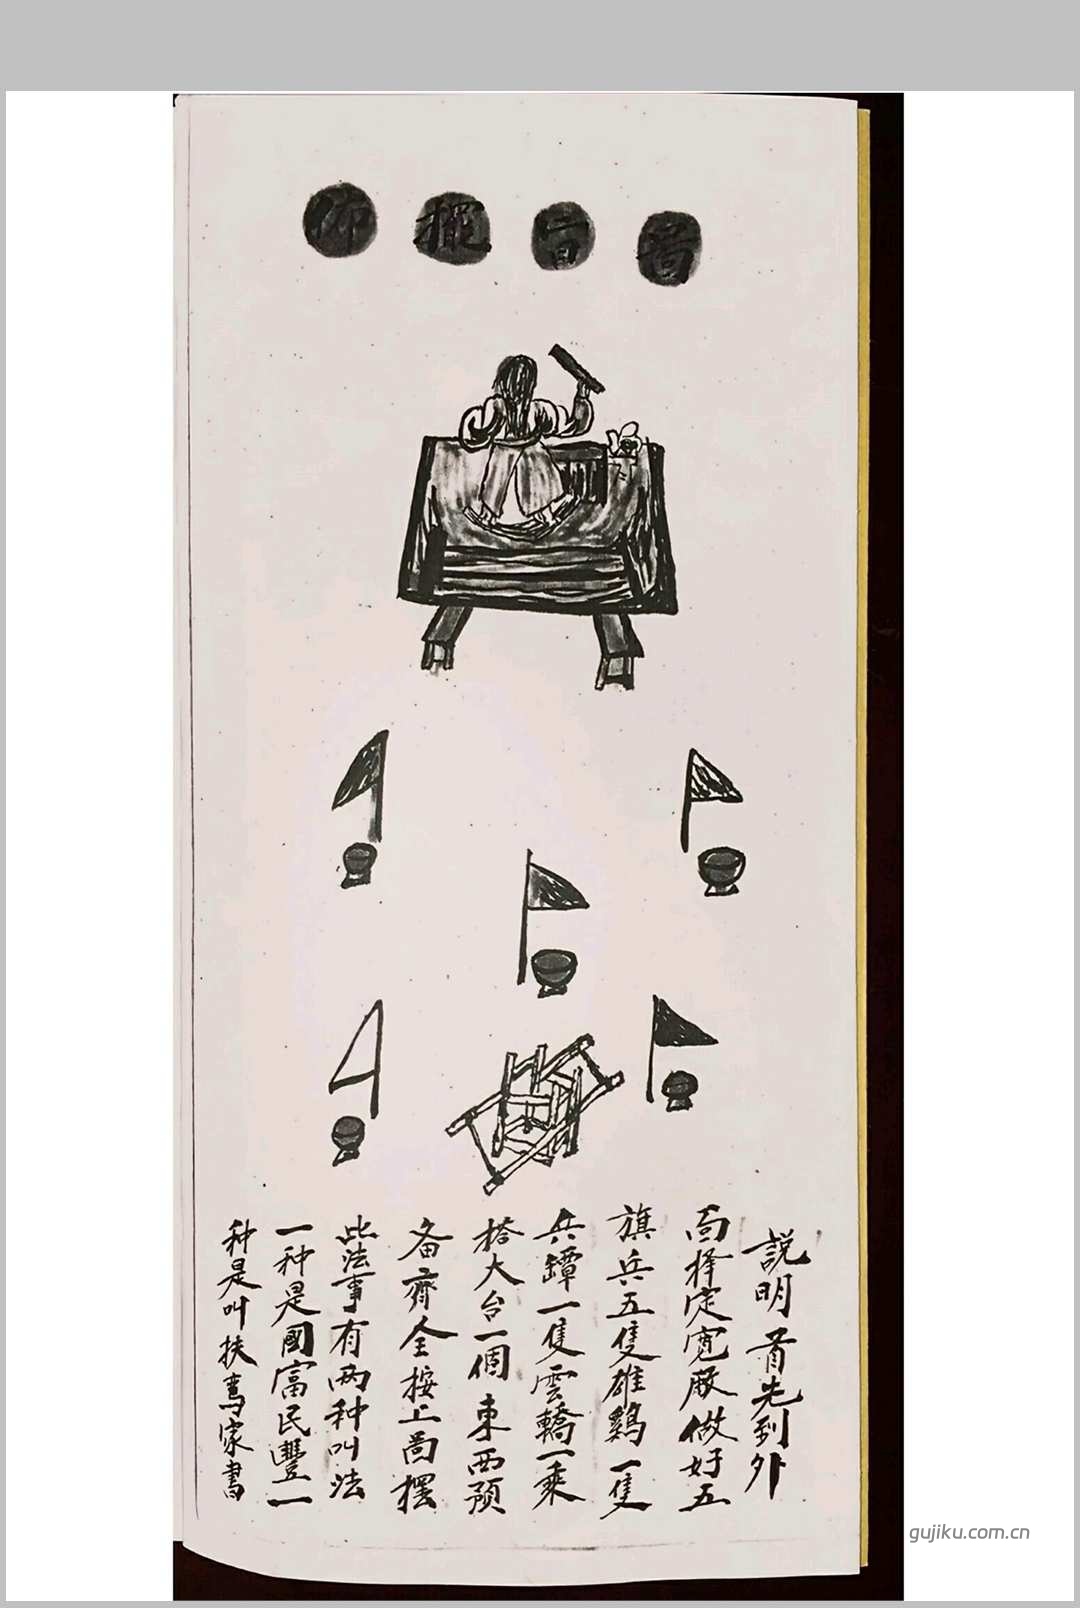 啚旨擺佈
説明 首先到外
面择定宽厰做好五
旗兵五隻雄鷄一隻
兵罈一隻雲轎一乘
搭大台一個東西預
备齊全按上啚摆
此法事有两种叫法
一种是國富民豐一
种是叫扶鸾家書
gujiku.com.cn